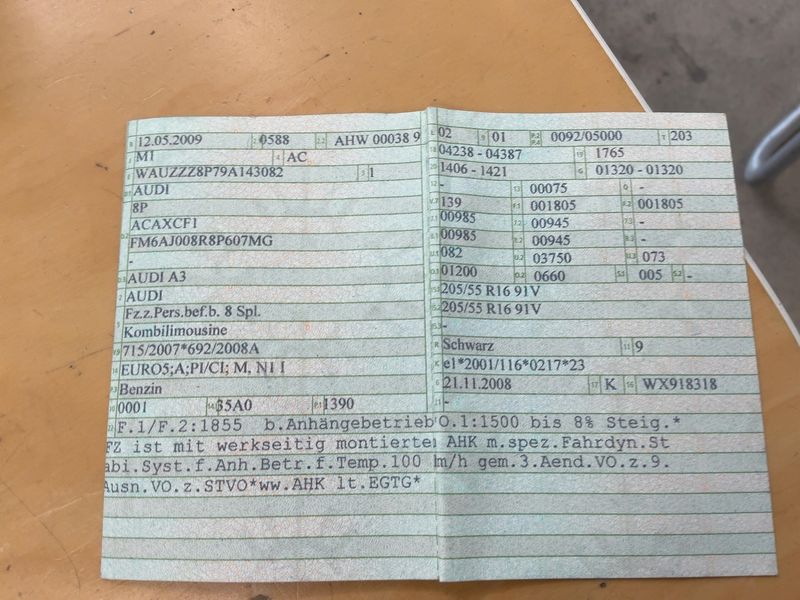 B 12.05.2009 2.1 0588 2.2 AHW 00038 9
J M1 4 AC
E WAUZZZ8P79A143082 3 1
D.1 AUDI
8P
D.2 ACAXCF1
FM6AJ008R8P607MG
-
D.3 AUDI A3
2 AUDI
5 Fz.z.Pers.bef.b. 8 Spl.
Kombilimousine
V.9 715/2007*692/2008A
14 EURO5;A;PI/CI; M, N1 I
P.3 Benzin
10 0001 14.1 35A0 P.1 1390
L 02 9 01 P.2 P.4 0092/05000 T 203
18 04238 - 04387 19 1765
20 1406 - 1421 G 01320 - 01320
12 - 13 00075 Q -
V.7 139 F.1 001805 F.2 001805
7.1 00985 7.2 00945 7.3 -
8.1 00985 8.2 00945 8.3 -
U.1 082 U.2 03750 U.3 073
O.1 01200 O.2 0660 S.1 005 S.2 -
15.1 205/55 R16 91V
15.2 205/55 R16 91V
15.3 -
R Schwarz 11 9
K e1*2001/116*0217*23
6 21.11.2008 17 K 16 WX918318
21 -
22 F.1/F.2:1855 b.Anhängebetrieb O.1:1500 bis 8% Steig.*
FZ ist mit werkseitig montierter AHK m.spez.Fahrdyn.St
abi.Syst.f.Anh.Betr.f.Temp.100 km/h gem.3.Aend.VO.z.9.
Ausn.VO.z.STVO*ww.AHK lt.EGTG*